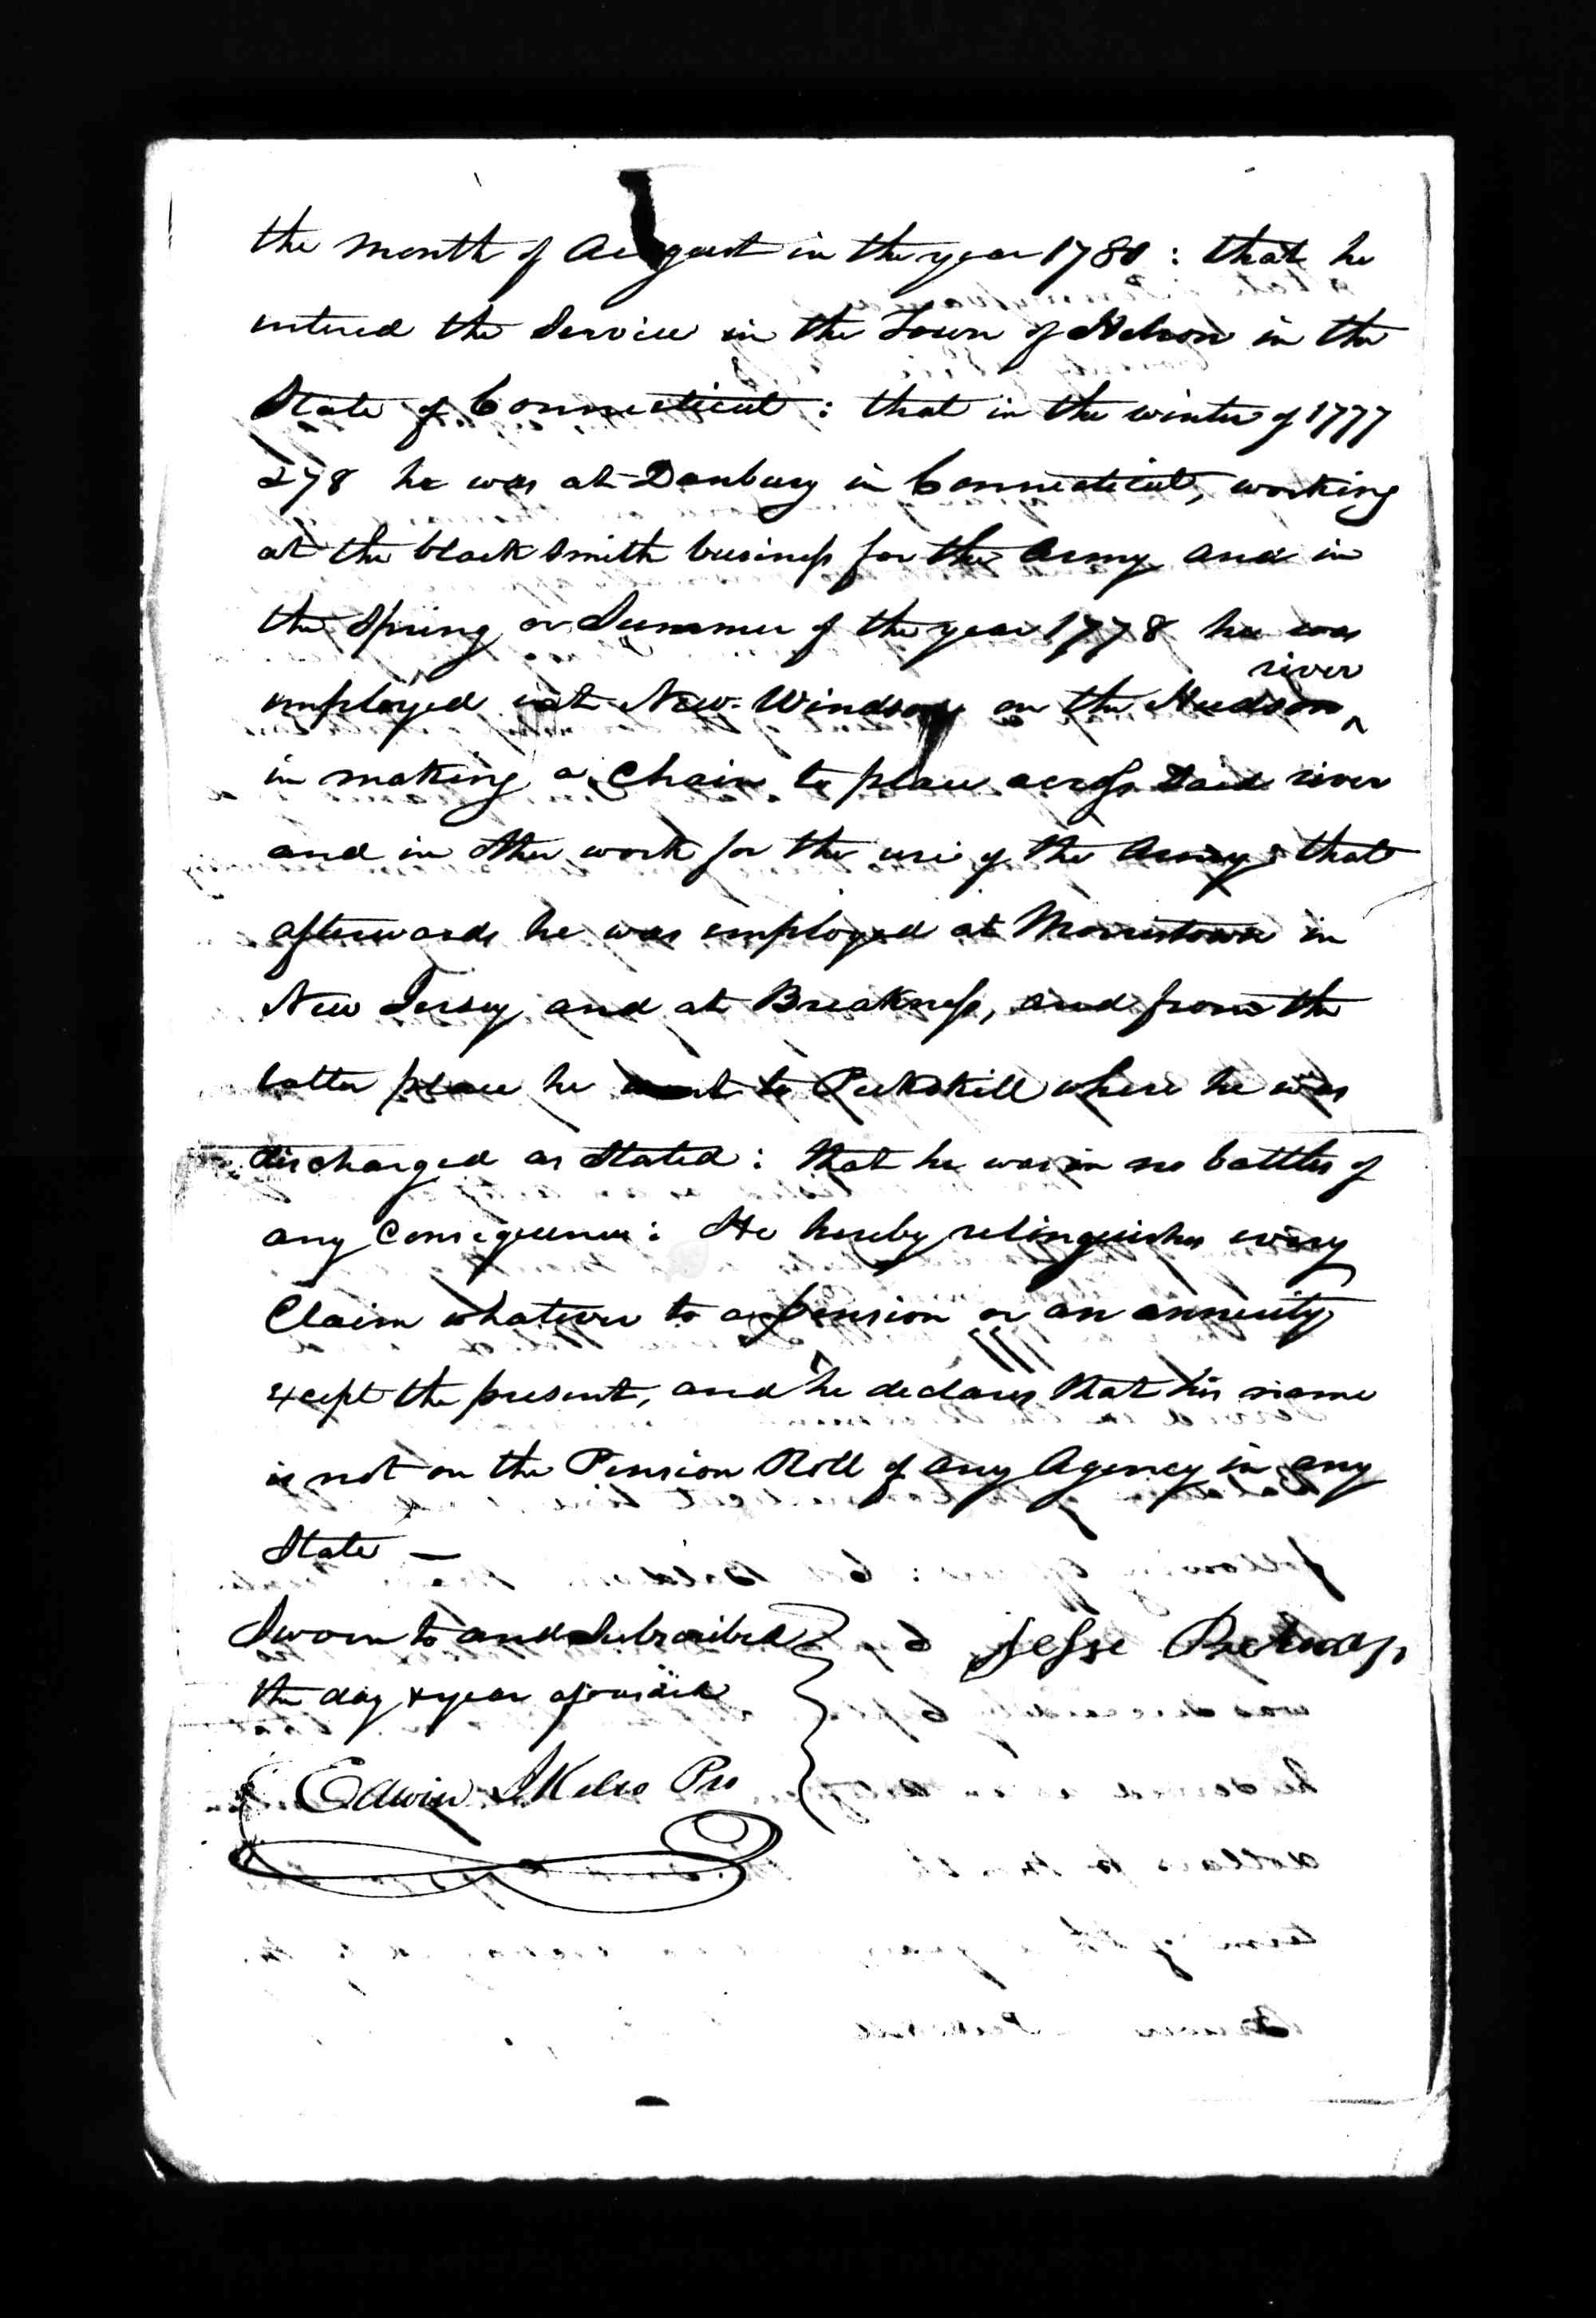 the month of August in the year 1780 : that he
entered the Service in the Town of Hebron in the
State of Connecticut : that in the winter of 1777
& 78 he was at Danbury in Connecticut, working
at the black Smith business for the Army and in
the Spring or Summer of the year 1778 he was
river
employed at New-Windsor on the Hudson ^
in making a Chain to place across said river
and in other work for the use of the Army : that
afterwards he was employed at Morristown in
New Jersey and at Preakness, and from the
latter place he went to Peekskill where he was
discharged as stated : that he was in no battles of
any Consequence : He hereby relinquishes every
Claim whatever to a pension or an annuity
except the present, and he declares that his name
is not on the Pension Roll of any Agency in any
State —
Sworn to and subscribed
the day & year aforesaid
Jesse
Edwin J Kelso Pro